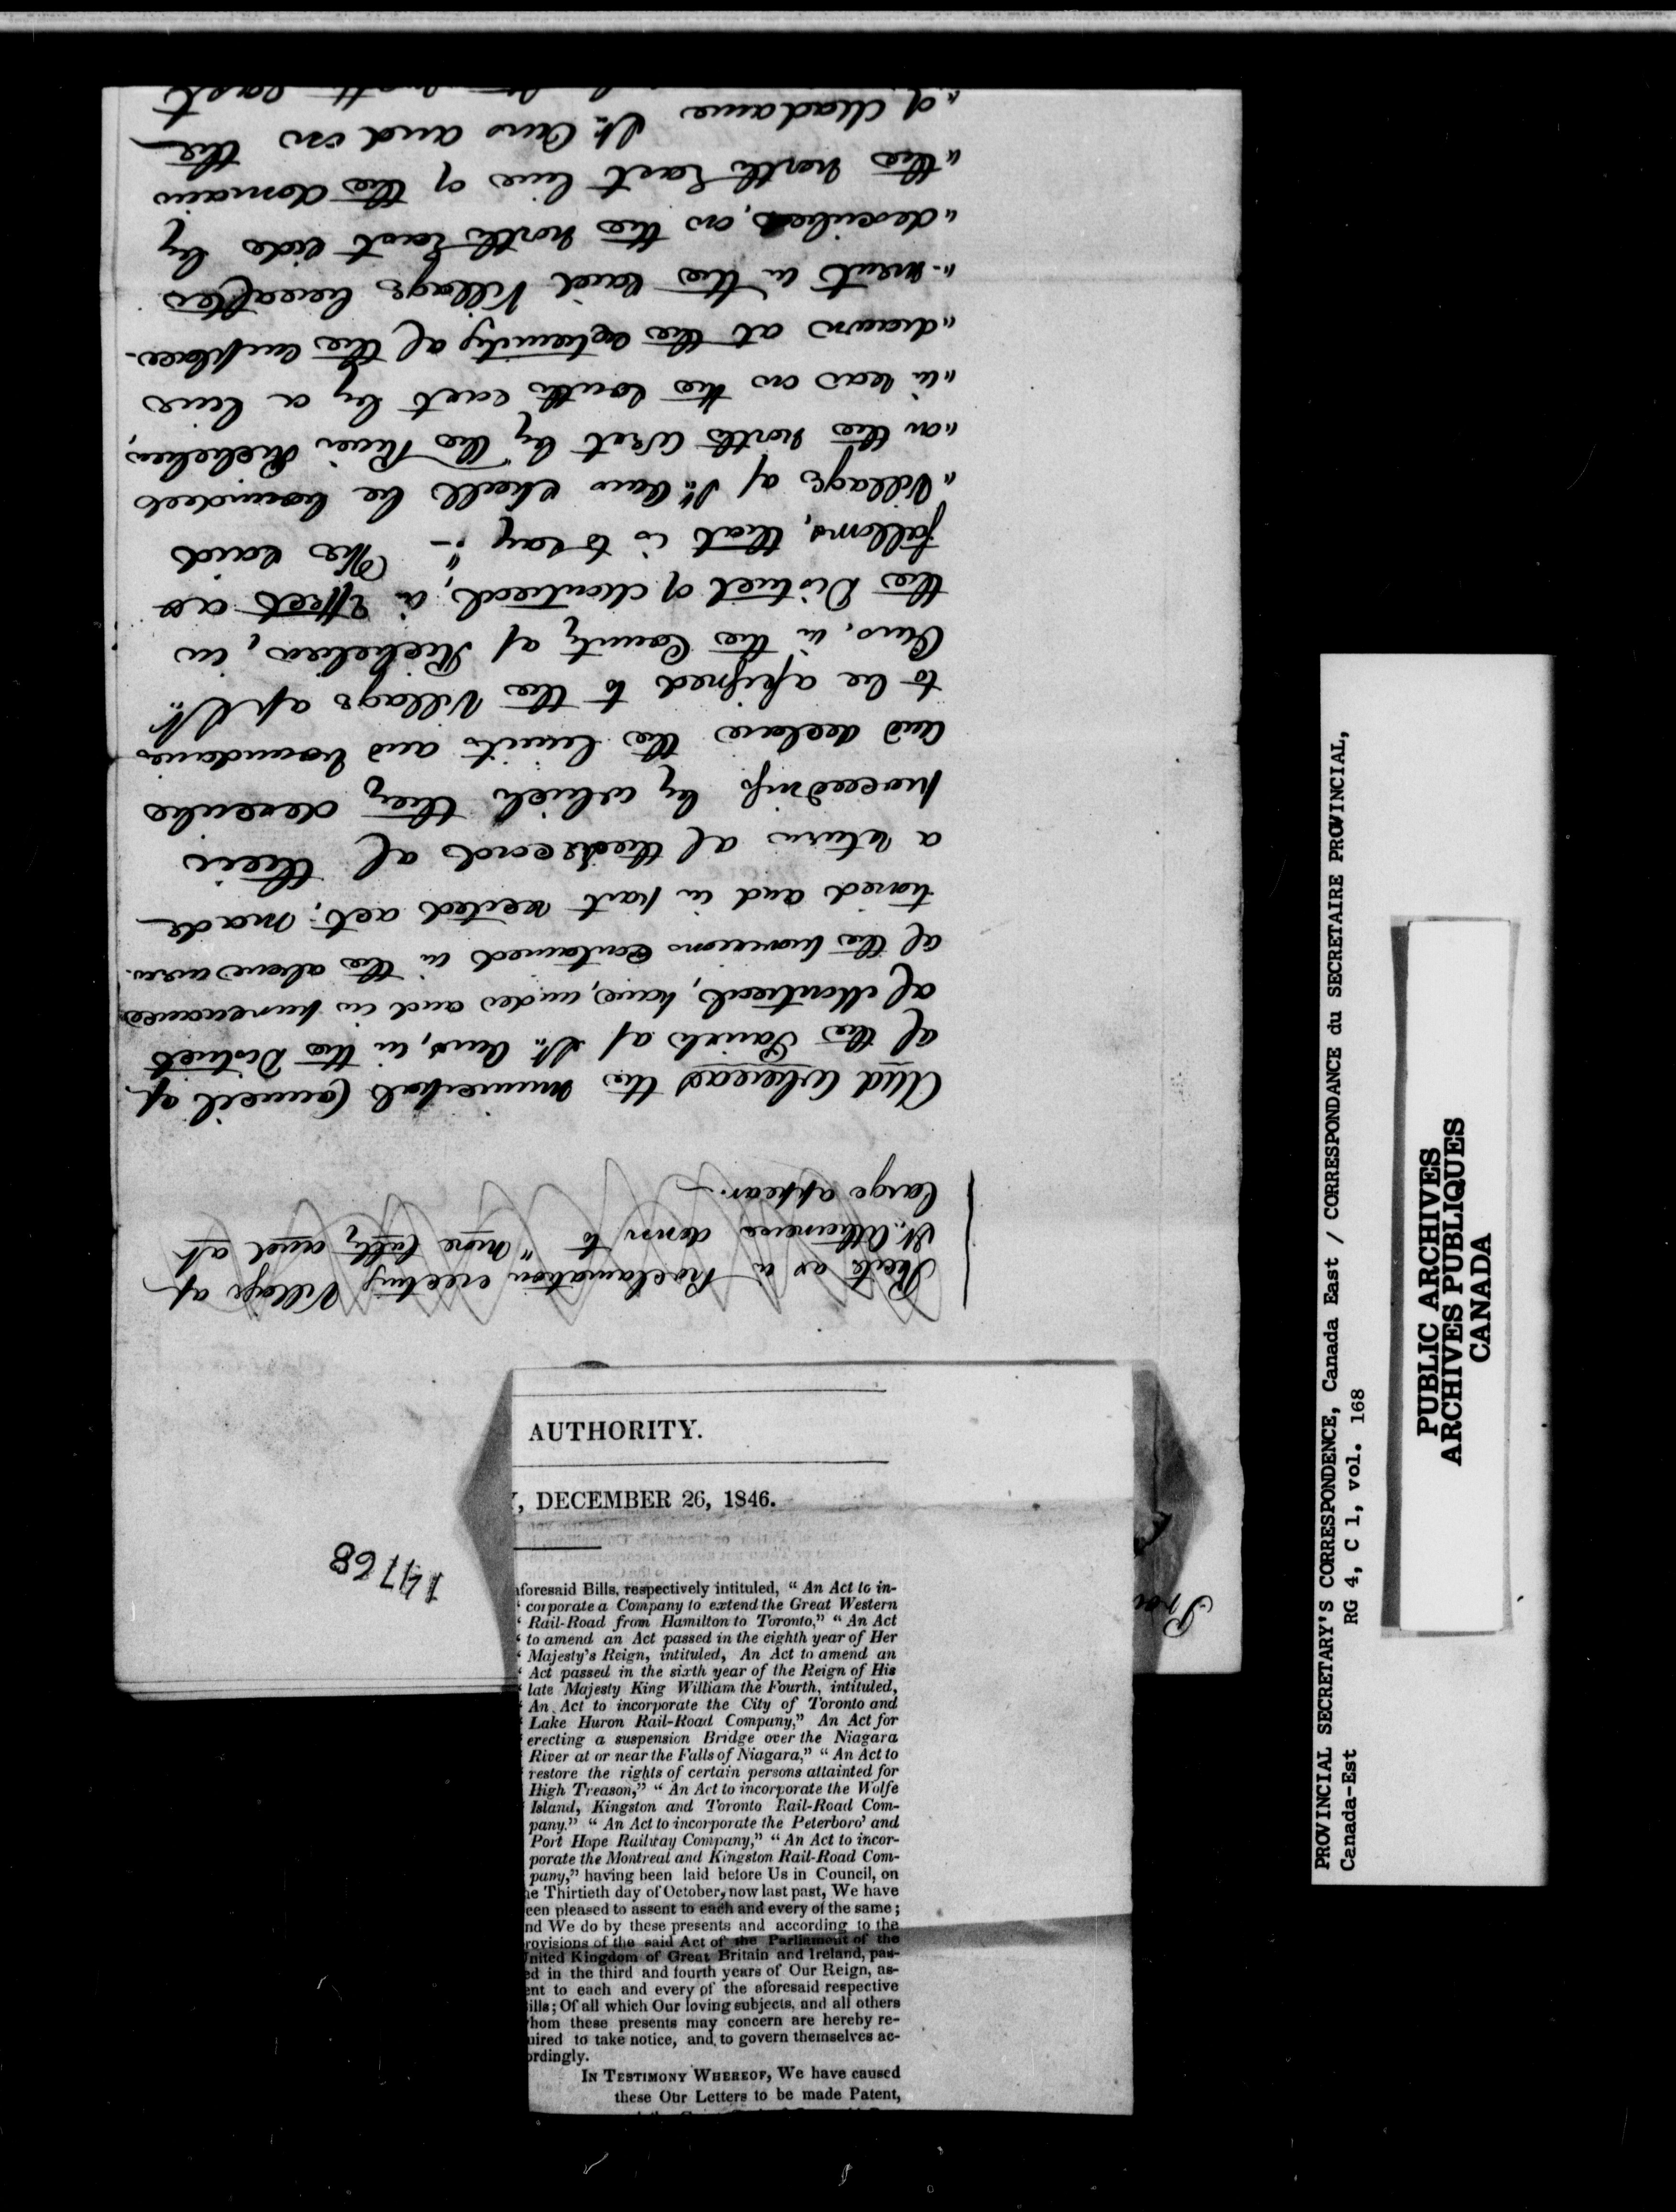 Recite as in Proclamation erecting Village of
St. Athanase down to "more fully and at
large appear.—
And Whereas the municipal Council of
of the Parish of St. Ours, in the District
of Montreal, have, under and in pursuance
of the provisions contained in the above men-
tioned and in part recited act, made
a return of the record of their
proceedings by which they describe
and declare the limits and boundaries
to be assigned to the Village of St.
Ours, in the County of Richelieu, in
the District of Montreal, in effect as
follows, that is to say:— "The said
"Village of St. Ours shall be bounded
"on the north West by the River Richelieu,
"in rear on the south east by a line
"drawn at the extremity of the emplace-
"-ment in the said Village hereafter
"described, on the north East side by
"the north East line of the domain
"of Madame St. Ours and on the
AUTHORITY.
, DECEMBER 26, 1846.
aforesaid Bills, respectively intituled, "An Act to in-
corporate a Company to extend the Great Western
Rail-Road from Hamilton to Toronto," "An Act
to amend an Act passed in the eighth year of Her
Majesty's Reign, intituled, An Act to amend an
Act passed in the sixth year of the Reign of His
late Majesty King William the Fourth, intituled,
An Act to incorporate the City of Toronto and
Lake Huron Rail-Road Company," An Act for
erecting a suspension Bridge over the Niagara
River at or near the Falls of Niagara," "An Act to
restore the rights of certain persons attainted for
High Treason," "An Act to incorporate the Wolfe
Island, Kingston and Toronto Rail-Road Com-
pany." "An Act to incorporate the Peterboro' and
Port Hope Railway Company," "An Act to incor-
porate the Montreal and Kingston Rail-Road Com-
pany," having been laid before Us in Council, on
he Thirtieth day of October, now last past, We have
een pleased to assent to each and every of the same;
nd We do by these presents and according to the
rovisions of the said Act of the Parliament of the
United Kingdom of Great Britain and Ireland, pas-
ed in the third and fourth years of Our Reign, as-
ent to each and every of the aforesaid respective
ills; Of all which Our loving subjects, and all others
hom these presents may concern are hereby re-
uired to take notice, and to govern themselves ac-
ordingly.
IN TESTIMONY WHEREOF, We have caused
these Our Letters to be made Patent,
14768
PROVINCIAL SECRETARY'S CORRESPONDENCE, Canada East / CORRESPONDANCE du SECRETAIRE PROVINCIAL,
Canada-Est RG 4, C 1, vol. 168
PUBLIC ARCHIVES
ARCHIVES PUBLIQUES
CANADA